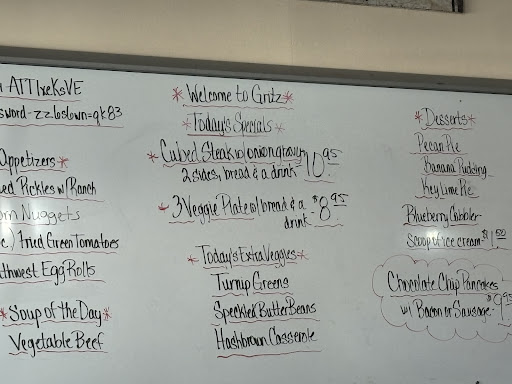 ATTIxeKsVE
sword-zzloslown=qk83
Appetizers*
ed Pickles w/ Ranch
orn Nuggets
e.) Fried Green Tomatoes
thwest Egg Rolls
*Soup of the Day*
Vegetable Beef
*Welcome to Gritz*
*Today's Specials*
*Cubed Steak w/ onion gravy 10.95
2 sides, bread & a drink
3 Veggie Plate w/ bread & a drink $8.95
*Today's Extra Veggies*
Turnip Greens
Speckled Butter Beans
Hashbrown Casserole
*Desserts*
Pecan Pie
Banana Pudding
Key Lime Pie
Blueberry Cobbler
scoop of ice cream $1.50
Chocolate Chip Pancakes
w/ Bacon or Sausage $9.95